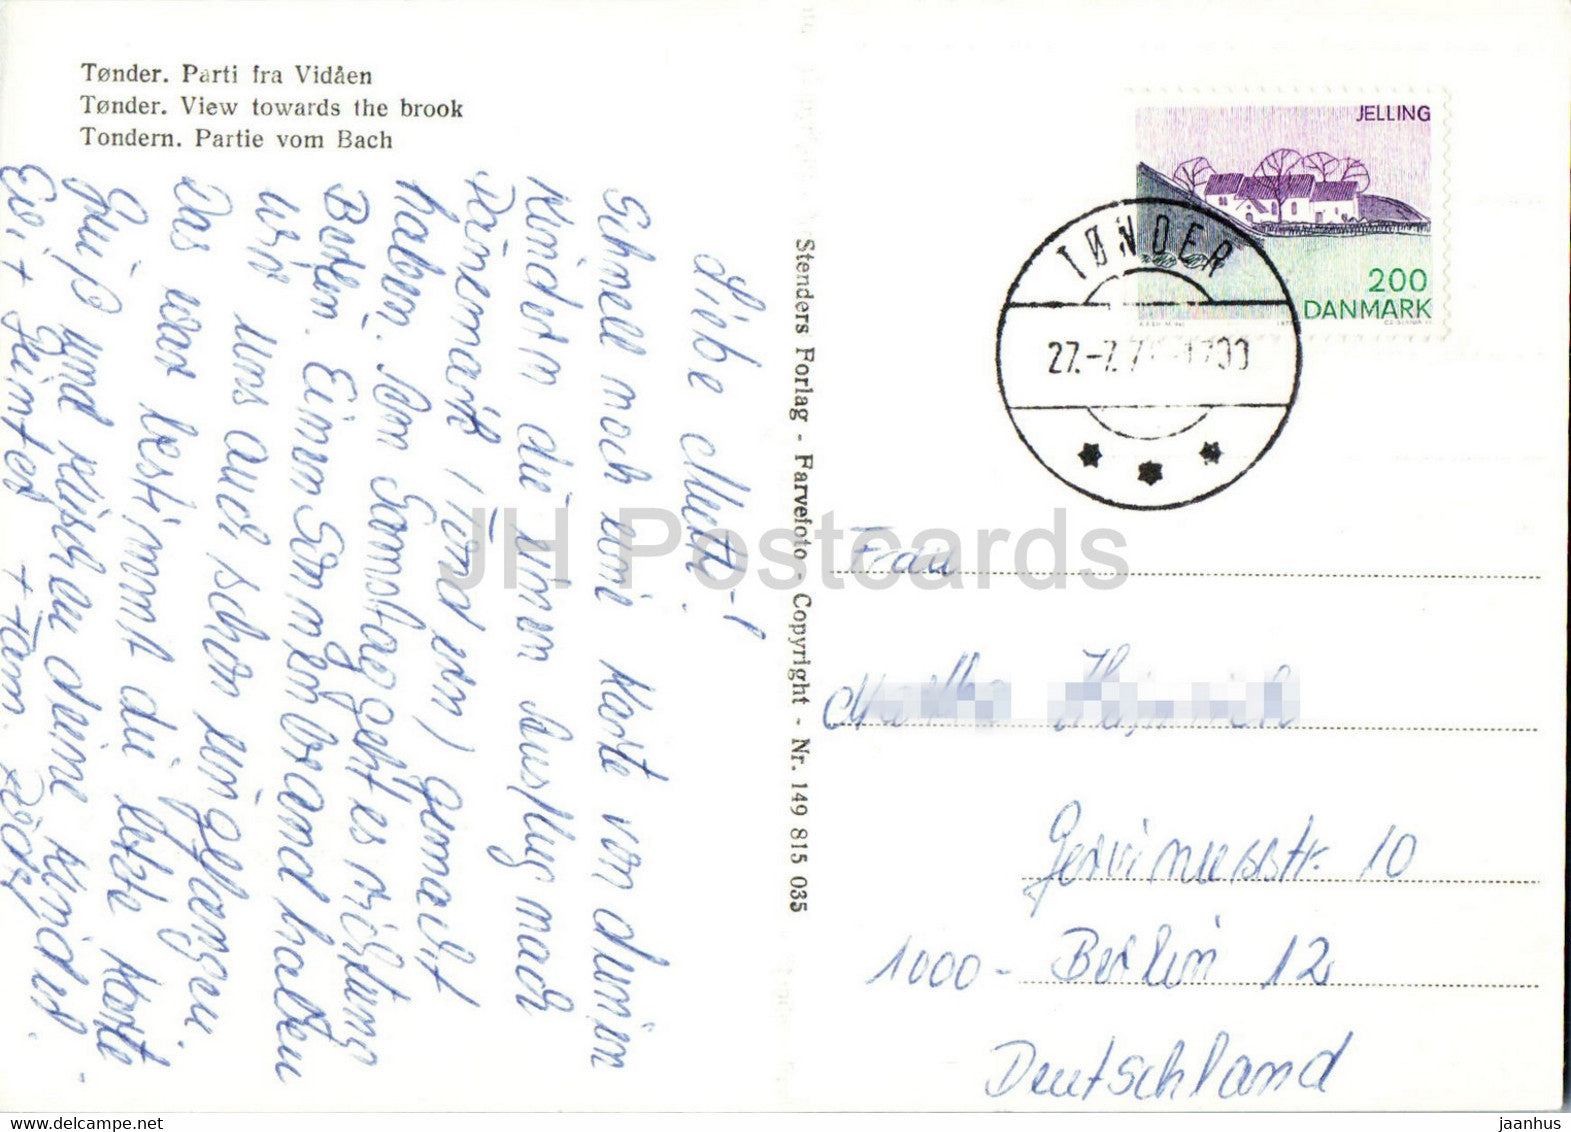 Tønder. Parti fra Vidåen
Tønder. View towards the brook
Tondern. Partie vom Bach
Liebe Mutti!
Schnell noch eine Karte von deinen
Kindern die einen Ausflug nach
Dänemark (Tondern) gemacht
haben. Am Samstag geht es richtung
Berlin. Einen Sonnenbrand haben
wir uns auch schon eingefangen.
Das war bestimmt die letzte Karte
Gruß und Küschen deine Kinder.
+ Günter + Fam.
Stenders Forlag - Farvefoto - Copyright - Nr. 149 815 035
JELLING
200
DANMARK
TØNDER
27.-7.
Frau
Gervinusstr. 10
1000- Berlin 12
Deutschland
JH Postcards
www.delcampe.net
jaanhus